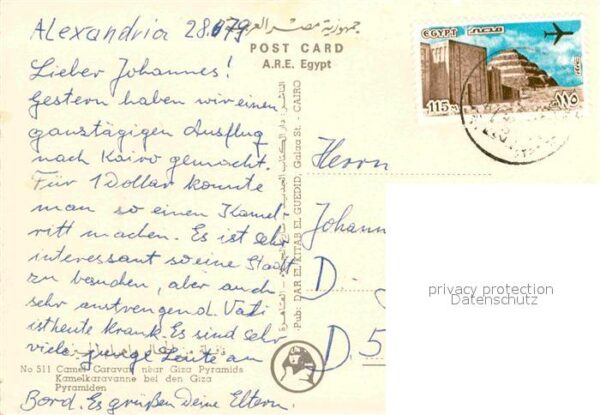 Alexandria 28.6.79
جمهورية مصر العربية
POST CARD
A.R.E. Egypt
EGYPT مصر
115 M
١١٥
Lieber Johannes!
Gestern haben wir einen
ganstägigen Ausflug
nach Kairo gemacht.
Für 1 Dollar konnte
man so einen Kamel
ritt machen. Es ist sehr
interessant so eine Stadt
zu besuchen, aber auch
sehr anstrengend. Vati
ist heute krank. Es sind sehr
viele junge Leute an
Bord. Es grüßen Deine Eltern.
No 511 Camel Caravan near Giza Pyramids
Kamelkaravanne bei den Giza
Pyramiden
Pub: DAR EL KITAB EL GUEDID, Galaa St. - CAIRO
Herrn
Johann
D.
D. 5
privacy protection
Datenschutz